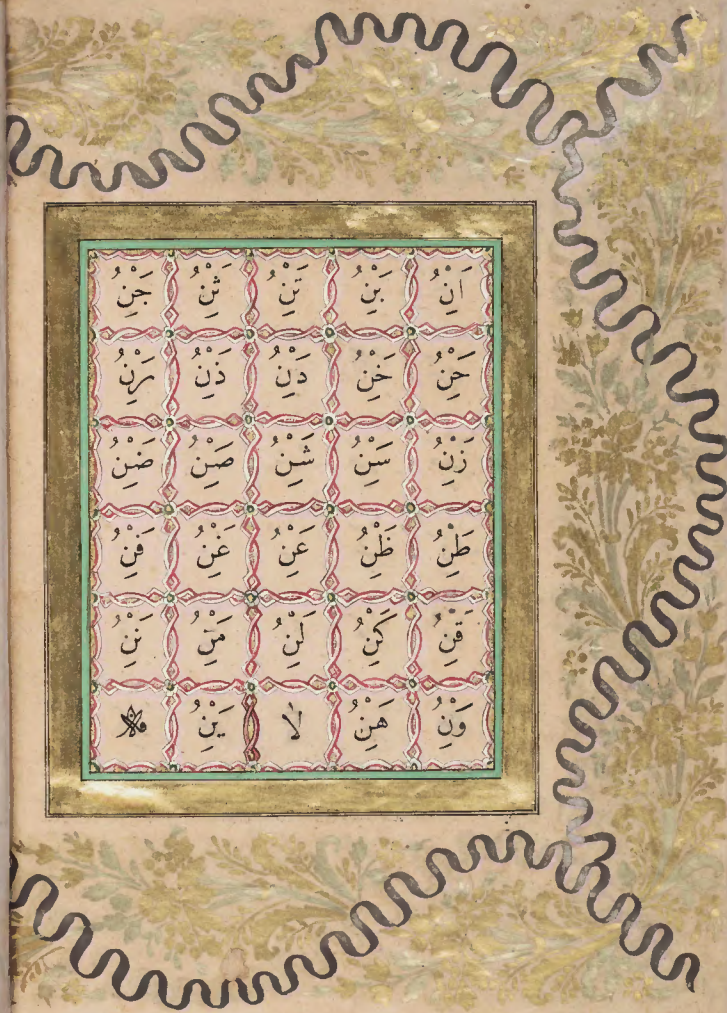 اَنُِْ بَنُِْ تَنُِْ ثَنُِْ جَنُِْ
حَنُِْ خَنُِْ دَنُِْ ذَنُِْ رَنُِْ
زَنُِْ سَنُِْ شَنُِْ صَنُِْ ضَنُِْ
طَنُِْ ظَنُِْ عَنُِْ غَنُِْ فَنُِْ
قَنُِْ كَنُِْ لَنُِْ مَنُِْ نَنُِْ
وَنُِْ هَنُِْ لَا يَنُِْ